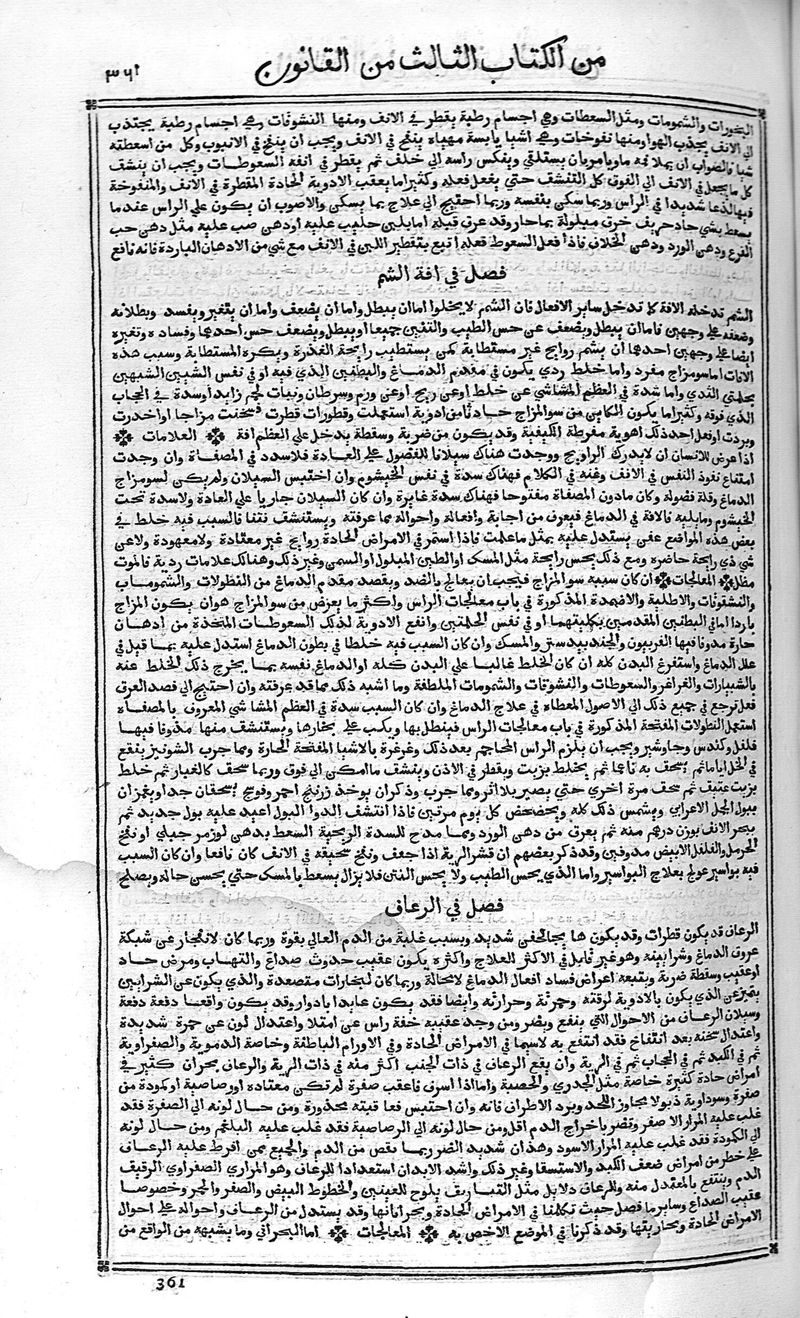 من الكتاب الثالث من القانون
٣٦١
البخورات والشمومات ومثل السعطات وهي اجسام رطبة يقطر في الانف ومنها النشوقات وهي اجسام رطبة يجتذب
الي الانف بجذب الهوا ومنها نفوخات وهي اشيا يابسة مهياه ينفخ في الانف ويجب ان ينفخ في الانبوب وكل من اسعطته
شيا فالصواب ان يملا فه ما ويامر بان يستلقي وينكس راسه الي خلف ثم يقطر في انفه السعوطات ويجب ان ينشف
كل ما يجعل في الانف الي الفوق كل التنشف حتي يفعل فعله وكثيرا ما يعقب الادوية الحادة المقطرة في الانف والمنفوخة
فيها لذعا شديدا في الراس وربما سكن بنفسه وربما احتيج الي علاج بما يسكن والاصوب ان يكون علي الراس عندما
يسعط بشي حاد حريف خرق مبلولة بما حار وقد عرق قبله اما بلبن حليب عليه او دهن صب عليه مثل دهن حب
القرع ودهن الورد ودهن الخلاف فاذا فعل السعوط فعله اتبع بتقطير اللبن في الانف مع شي من الادهان الباردة فانه نافع
فصل في افة الشم
الشم تدخله الافة كما تدخل ساير الافعال فان الشم لا يخلوا اما ان يبطل واما ان يضعف واما ان يتغير ويفسد وبطلانه
وضعفه علي وجهين فاما ان يبطل ويضعف عن حس الطيب والنتن جميعا او يبطل ويضعف حس احدهما وفساده وتغيره
ايضا علي وجهين احدهما ان يشم روايح غير مستطابة كمن يستطيب رايحة العذرة ويكره المستطابة وسبب هذه
الافات اما سو مزاج مفرد واما خلط ردي يكون في مقدم الدماغ والبطنين الذي فيه او في نفس الشيين الشبيهين
بحلمتي الثدي واما شدة في العظم المشاشي عن خلط او عن ريح او عن ورم وسرطان ونبات لحم زايد او سدة في الحجاب
الذي فوقه وكثيرا ما يكون الكاين من سو المزاج حادثا من ادوية استعملت وقطورات قطرت فسخنت مزاجا او اخدرت
وبردت او فعل احد ذلك اهوية مفرطة الكيفية وقد يكون من ضربة وسقطة يدخل علي العظم افة ❋ العلامات ❋
اذا عرض للانسان ان لا يدرك الروايح ووجدت هناك سيلانا للفضول علي العادة فلا سدد في المصفاة وان وجدت
امتناع نفوذ النفس في الانف وغنه في الكلام فهناك سدة في نفس الخيشوم وان احتبس السيلان ولم يكن لسو مزاج
الدماغ وقلة فضوله وكان ما دون المصفاة مفتوحا فهناك سدة غايرة وان كان السيلان جاريا علي العادة ولا سدة تحت
الخيشوم وما يليه فالافة في الدماغ فيعرف من اجابة وافعاله واحواله مما عرفته ويستنشف نتنا فالسبب فيه خلط في
بعض هذه المواضع عفن يستدل عليه بمثل ما علمت فاذا استمر في الامراض الحادة روايح غير معتادة ولا معهودة ولا عن
شي ذي رايحة حاضره ومع ذلك يحس رايحة مثل المسك او الطين المبلول او السمن وغير ذلك وهنالك علامات ردية فالموت
مظل ❋ المعالجات ❋ ان كان سببه سو المزاج فيجب ان يعالج بالضد ويقصد مقدم الدماغ من النطولات والشمومات
والنشوقات والاطلية والاضمدة المذكورة في باب معالجات الراس واكثر ما يعرض من سو المزاج هو ان يكون المزاج
باردا اما في البطنين المقدمين بكليتهما او في نفس الحلمتين وانفع الادوية لذلك السعوطات المتخذة من ادهان
حارة مدوفا فيها الفربيون والجندبيدستر والمسك وان كان السبب فيه خلطا في بطون الدماغ استدل عليه بما قيل في
علل الدماغ واستفرغ البدن كله ان كان الخلط غالبا علي البدن كله او الدماغ نفسه بما يخرج ذلك الخلط عنه
بالشبيارات والغراغر والسعوطات والنشوقات والشمومات الملطفة وما اشبه ذلك مما قد عرفته وان احتيج الي فصد العرق
فعل ترجع في جميع ذلك الي الاصول المعطاه في علاج الدماغ وان كان السبب سدة في العظم المشاشي المعروف بالمصفاه
استعمل النطولات المفتحة المذكورة في باب معالجات الراس فينطل بها ويكب علي بخارها ويستنشف منها مدوفا فيها
فلفل وكندس وجاوشير ويجب ان يلزم الراس المحاجم بعد ذلك وغرغرة بالاشيا المفتحة الحارة ومما جرب الشونيز ينقع
في الخل اياما ثم يسحف به ناعما ثم يخلط بزيت ويقطر في الاذن وينشف ما امكن الي فوق وربما سحف كالغبار ثم خلط
بزيت عتيق ثم سحف مرة اخري حتي يصير بلا اثر ومما جرب وذكر ان يوخذ زرنيخ احمر وفوتنج يسحقان جدا ويغمران
ببول الجمل الاعرابي ويشمس ذلك كله ويخضخض كل يوم مرتين فاذا انتشف الدوا البول اعيد عليه بول جديد ثم
يبخر الانف بوزن درهم منه ثم يعرق من دهن الورد ومما مدح للسدة الريحية السعط بدهن لوز مر جبلي او نفخ
الحرمل والفلفل الابيض مدوفين وقد ذكر بعضهم ان قشر الرية اذا جعف ونفخ سحيقه في الانف كان نافعا وان كان السبب
فيه بواسير عولج بعلاج البواسير واما الذي يحس الطيب ولا يحس النتن فلا يزال يسعط بالمسك حتي يحسن حاله ويصلح
فصل في الرعاف
الرعاف قد يكون قطرات وقد يكون ها يجا لحفي شديد وبسبب غلبة من الدم العالي بقوة وربما كان لانفجار عن شبكة
عروق الدماغ وشرايينه وهو غير قابل في الاكثر العلاج واكثره يكون عقيب حدوث صداع والتهاب ومرض حاد
او عقيب وسقطة ضربة ويتبعه اعراض فساد افعال الدماغ لا محالة وربما كان لبخارات متصعدة والذي يكون عن الشرايين
يتميز عن الذي يكون بالادوية لرقته وحمرته وحرارته وايضا فقد يكون عايدا بادوار وقد يكون واقعا دفعة دفعة
وسيلان الرعاف من الاحوال التي ينفع ويضر ومن وجد عقيبه خفة راس عن امتلا واعتدال لون عن حمرة شديدة
واعتدال سخنه بعد انتفاخ فقد انتفع به لا سيما في الامراض الحادة وفي الاورام الباطنة وخاصة الدموية والصفراوية
ثم في الكبد ثم في الحجاب ثم في الرية وان يقع الرعاف في ذات الجنب اكثر منه في ذات الرية والرعاف بحران كثير في
امراض حادة كثيرة خاصة مثل الجدري والحصبة واما اذا اسرف فاعقب صفرة لم تكن معتاده او رصاصية او كمودة من
صفرة وسوداوية ذبولا يجاوز الحد وبرد الاطراف فانه وان احتبس فعاقبته محذورة ومن حال لونه الي الصفرة فقد
غلب عليه المرار الاصفر وتضر باخراج الدم اقل ومن حال لونه الي الرصاصية فقد غلب عليه البلغم ومن حال لونه
الي الكمودة فقد غلب عليه المرار الاسود وهذان شديد الضرر بما نقص من الدم والجميع ممن افرط عليه الرعاف
علي خطر من امراض ضعف الكبد والاستسقا وغير ذلك واشد الابدان استعدادا للرعاف وهو المراري الصفراوي الرقيق
الدم وينتفع بالمعتدل منه وللرعاف دلايل مثل التباريق يلوح للعينين والخطوط البيض والصفر والحمر وخصوصا
عقيب الصداع وساير ما فصل حيث تكلمنا في الامراض الحادة وبحراناتها وقد يستدل من الرعاف واحواله علي احوال
الامراض الحادة وبحارينها وقد ذكرنا في الموضع الاخص به ❋ المعالجات ❋ اما البحراني وما يشبهه من الواقع من
361